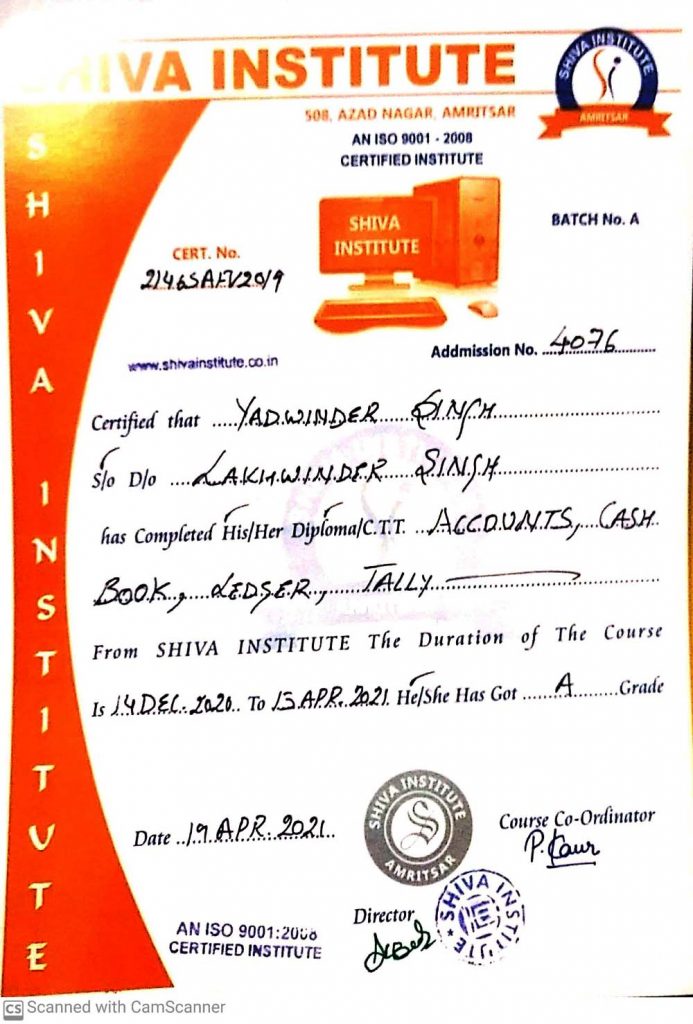 SHIVA INSTITUTE
SHIVA INSTITUTE
AMRITSAR
508, AZAD NAGAR, AMRITSAR
AN ISO 9001 - 2008
CERTIFIED INSTITUTE
SHIVA INSTITUTE
SHIVA
INSTITUTE
BATCH No. A
CERT. No.
www.shivainstitute.co.in
Addmission No. 4076
Certified that YADWINDER SINGH
S/o D/o LAKHWINDER SINGH
has Completed His/Her Diploma/C.T.T. ACCOUNTS, CASH
BOOK, LEDGER, TALLY
From SHIVA INSTITUTE The Duration of The Course
Is 14 DEC. 2020 To 15 APR. 2021 He/She Has Got A Grade
Date 19 APR. 2021
SHIVA INSTITUTE
S
AMRITSAR
Course Co-Ordinator
P. Kaur
Director
SHIVA INSTITUTE
AN ISO 9001:2008
CERTIFIED INSTITUTE
CS Scanned with CamScanner